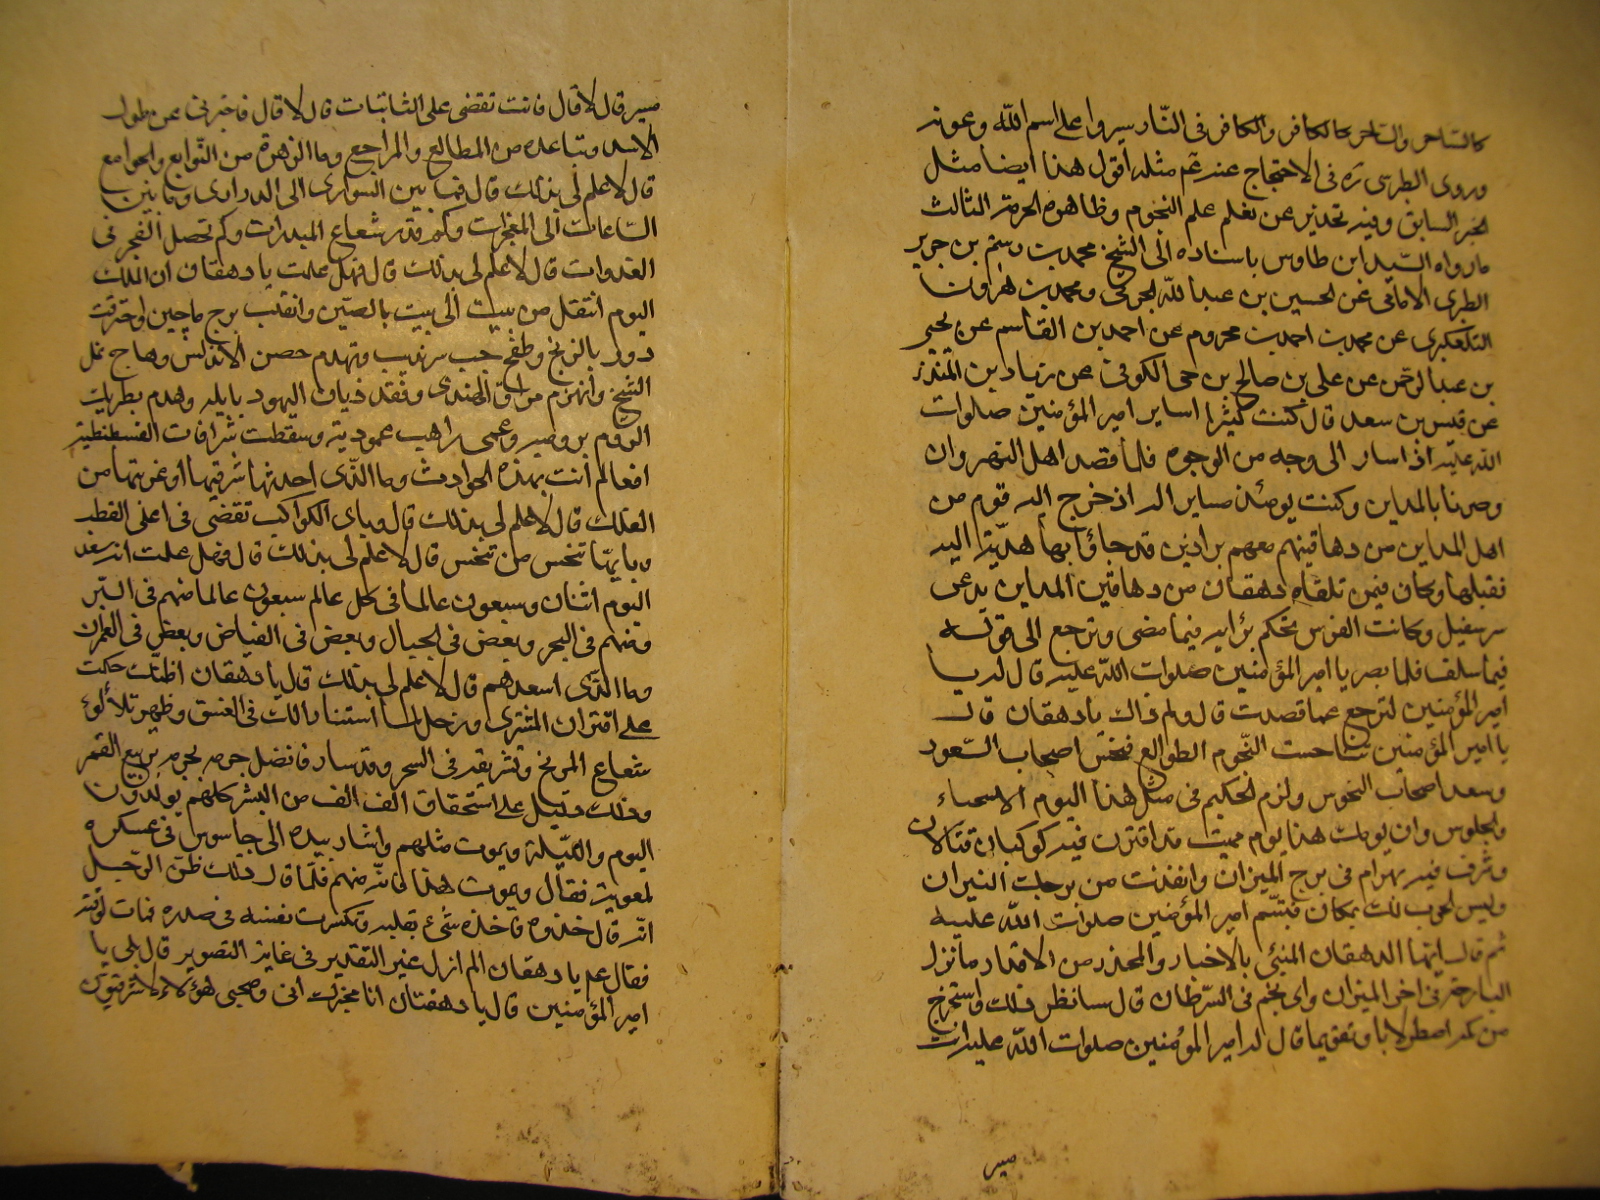 كالساحر والساحر كالكافر والكافر في النّار سيروا على اسم الله وعونه
وروى الطبرسي ره في الاحتجاج عنه ع مثله اقول هذا ايضا مثل
الخبر السابق وفيه تحذير عن تعلم علم النجوم وظاهره الحرمة الثالث
ما رواه السّيد ابن طاوس باسناده الى الشيخ محمد بن رستم بن جرير
الطبري الامامي عن الحسين بن عبدالله الجرمي ومحمد بن هارون
التلعكبري عن محمد بن احمد بن محروم عن احمد بن القاسم عن يحيى
بن عبدالرحمن عن على بن صالح بن حى الكوفي عن زياد بن المنذر
عن قيس بن سعد قال كنت كثيرا اساير امير المؤمنين صلوات
الله عليه اذا سار الى وجه من الوجوه فلما قصد اهل النهروان
وصرنا بالمداين وكنت يومئذ مسايرا له اذ خرج اليه قوم من
اهل المداين من دهاقينهم معهم براذين قد جاؤا بها هدّية اليه
فقبلها وكان فيمن تلقاه دهقان من دهاقين المداين يدعى
سرسفيل وكانت الفرس تحكم برأيه فيما مضى وترجع الى قوله
فيما سلف فلما بصر يا امير المؤمنين صلوات الله عليه قال له يا
امير المؤمنين لترجع عما قصدت قال ولم ذاك يا دهقان قال
يا امير المؤمنين تناحست النّجوم الطوالع فنحس اصحاب السّعود
وسعد اصحاب النحوس ولزم الحكيم في مثل هذا اليوم الاستخفاء
والجلوس وان يومك هذا يوم مميت قد اقترن فيه كوكبان قتالان
وشرف فيه بهرام في برج الميزان وانفذت من برجك النيران
وليس الحرب لك بمكان فتبسّم امير المؤمنين صلوات الله عليه
ثم قال ايها الدهقان المنبئ بالاخبار والمحذر من الاقدار ما نزل
البارحة في اخر الميزان واى نجم في السّرطان قال سانظر ذلك واستخرج
من كمه اصطرلابا وتقويما قال له امير المؤمنين صلوات الله عليه انت
مسير
مسير قال لا قال فانت تقضى على الثابتات قال لا قال فاخبرني عن طول
الاسد وتباعده من المطالع والمراجع وما الزهرة من التّوابع والجوامع
قال لا علم لى بذلك قال فما بين السوارى الى الدرارى وما بين
السّاعات الى المعجرات وكم قدر شعاع المبدرات وكم تحصل الفجر في
الغدوات قال لا علم لى بذلك قال فهل علمت يا دهقان ان الملك
اليوم انتقل من بيت الى بيت بالصّين وانقلب برج ماچين واحترقت
دور بالزنج وطفح جب سرنديب وتهدم حصن الاندلس وهاج نمل
الشيخ وانهزم مراق الهندى وفقد ذيان اليهود بايله وهدم بطريق
الروم برومية وعمى راهب عمورية وسقطت شرافات القسطنطنية
افعالم انت بهذه الحوادث وما الذّى احدثها شرقيها او غربيها من
الفلك قال لا علم لى بذلك قال وباى الكواكب تقضى في اعلى القطب
وبايهّا تنحس من تنحس قال لا علم لى بذلك قال فهل علمت انه سعد
اليوم اثنان وسبعون عالما في كل عالم سبعون عالما منهم في البّر
ومنهم في البحر وبعض في الجبال وبعض في الغياض وبعض في العمران
وما الذّى اسعدهم قال لا علم لى بذلك قال يا دهقان اظنّك حكمت
على اقتران المشترى وزحل لما استنارا لك في الغسق وظهر تلألؤ
شعاع المريخ وتشريقه في السحر وقد سار فاتصل جرمه بجرم تربيع القمر
وذلك دليل على استحقاق الف الف من البشر كلهم يولدون
اليوم والليّلة ويموت مثلهم واشار بيده الى جاسوس في عسكره
لمعوية فقال ويموت هذا فانّه منهم فلمّا قال ذلك ظن الرّجل
انّه قال خذوه فاخذه شىء بقلبه وتكسرت نفسه في صدره فمات لوقته
فقال ع يا دهقان الم ازل عين التقدير في غاية التصوير قال بلى يا
امير المؤمنين قال يا دهقان انا مخبرك انى وصحبى هؤلاء لا شرقيون